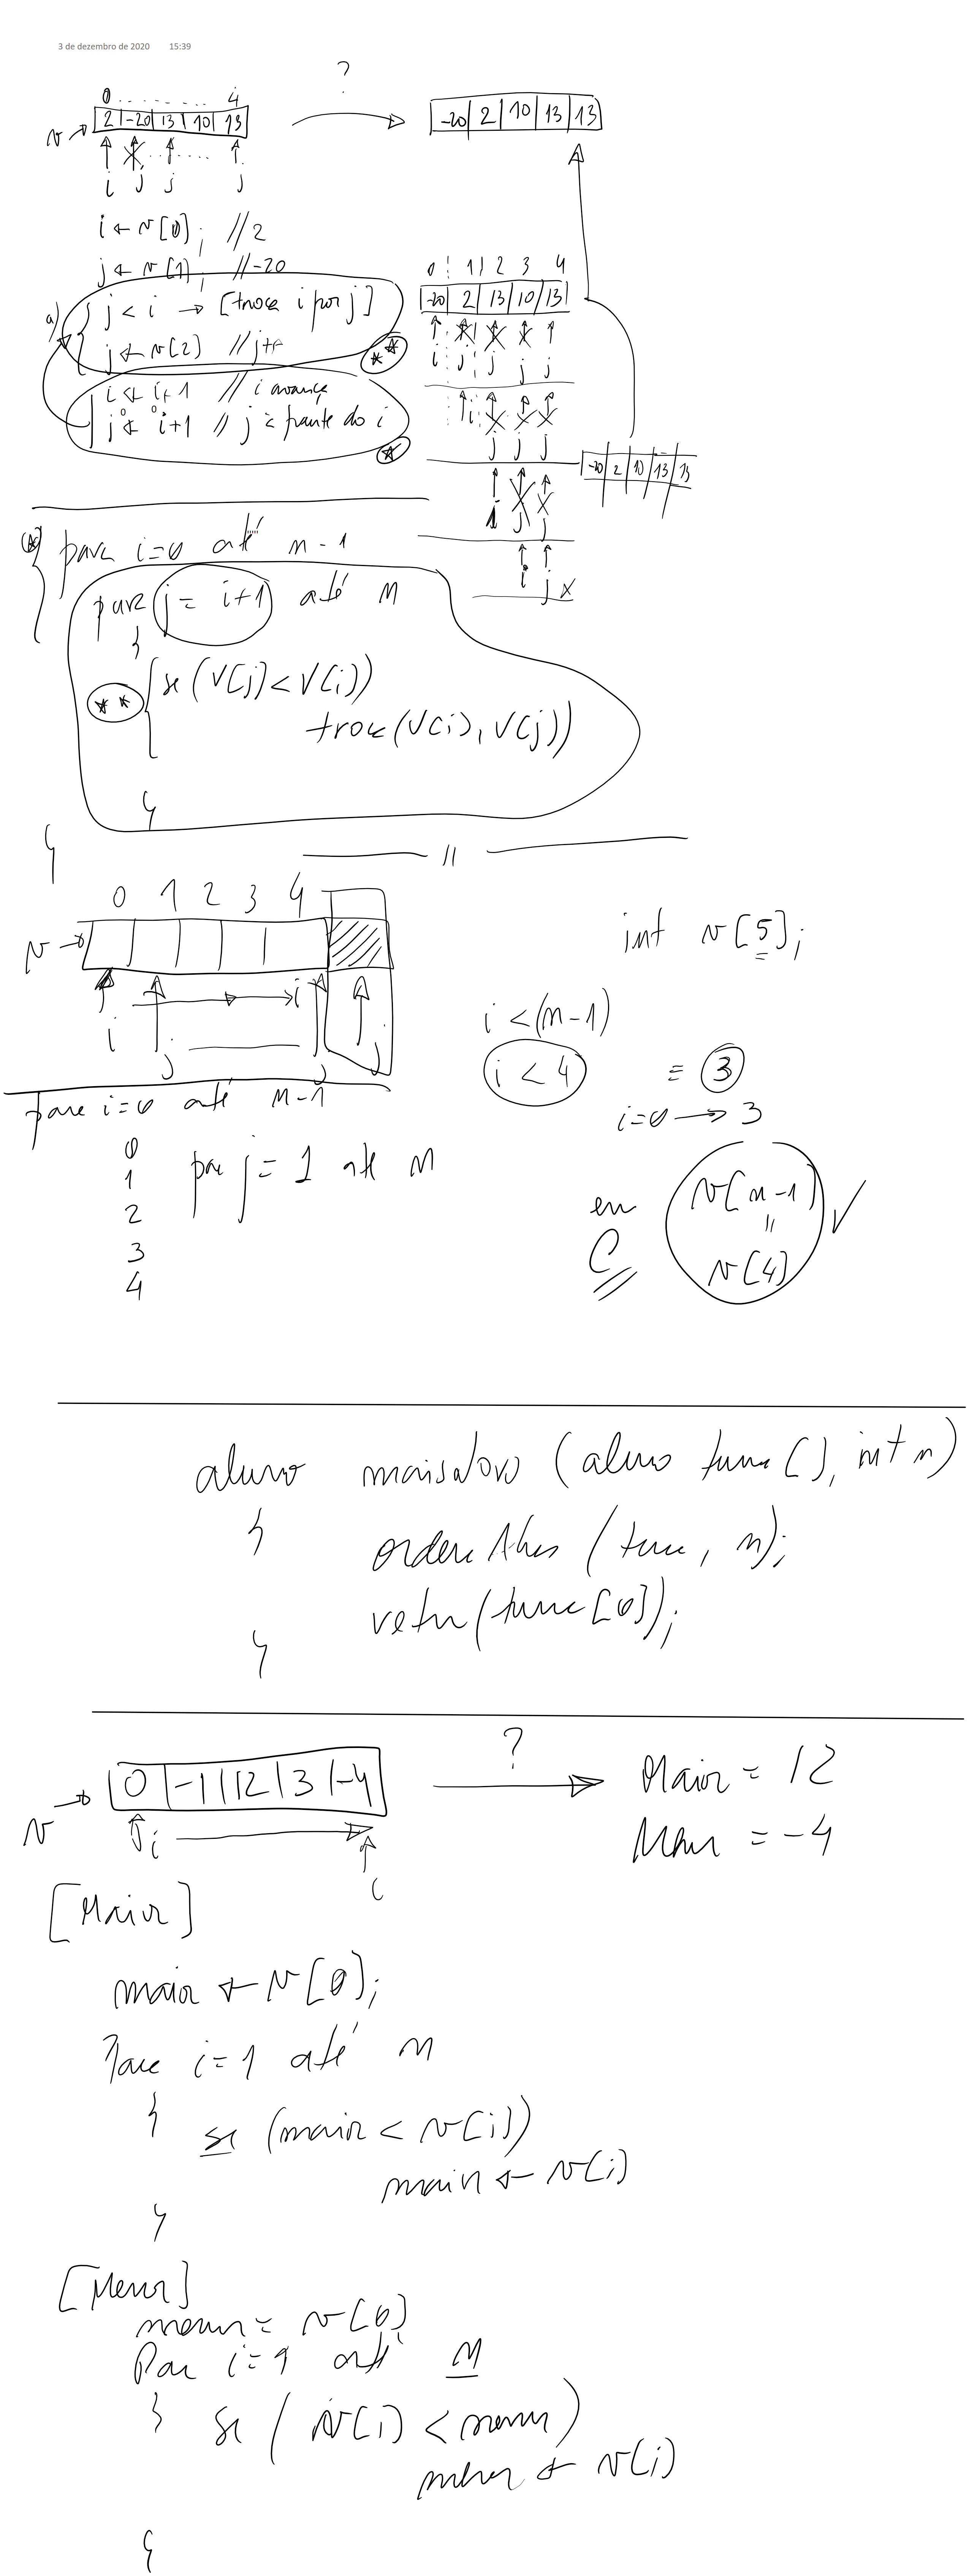 3 de dezembro de 2020 15:39
?
0 . . . . . . . . 4
v → 2 | -20 | 13 | 10 | 13
-20 | 2 | 10 | 13 | 13
i j j j
i ← v[0]; // 2
j ← v[1]; // -20
a) j < i → [troca i por j]
j ← v[2] // j++ **
i ← i+1 // i avança
j ← i+1 // j à frente do i
*
0 1 2 3 4
-20 | 2 | 13 | 10 | 13
i j j j j
i j j j
-20 | 2 | 10 | 13 | 13
i j j
i j x
(*) para i=0 até n-1
{
para j = i+1 até n
{
** se (V[j] < V[i])
troca(V[i], V[j])
}
}
//
0 1 2 3 4
v →
i j i j j
int v[5];
i < (n-1)
i < 4 ≡ 3
i=0 → 3
para i=0 até n-1
0
1 para j = 1 até n
2
3
4
em C
v[n-1]
"
v[4] ✓
aluno maisNovo (aluno turma[], int n)
{
(turma, n);
return(turma[0]);
}
v → 0 | -1 | 12 | 3 | -4
?
Maior = 12
Menor = -4
i i
[Maior]
maior ← v[0];
Para i=1 até n
{
se (maior < v[i])
maior ← v[i]
}
[Menor]
menor = v[0]
Para i=1 até n
{ se (v[i] < menor)
menor ← v[i]
}